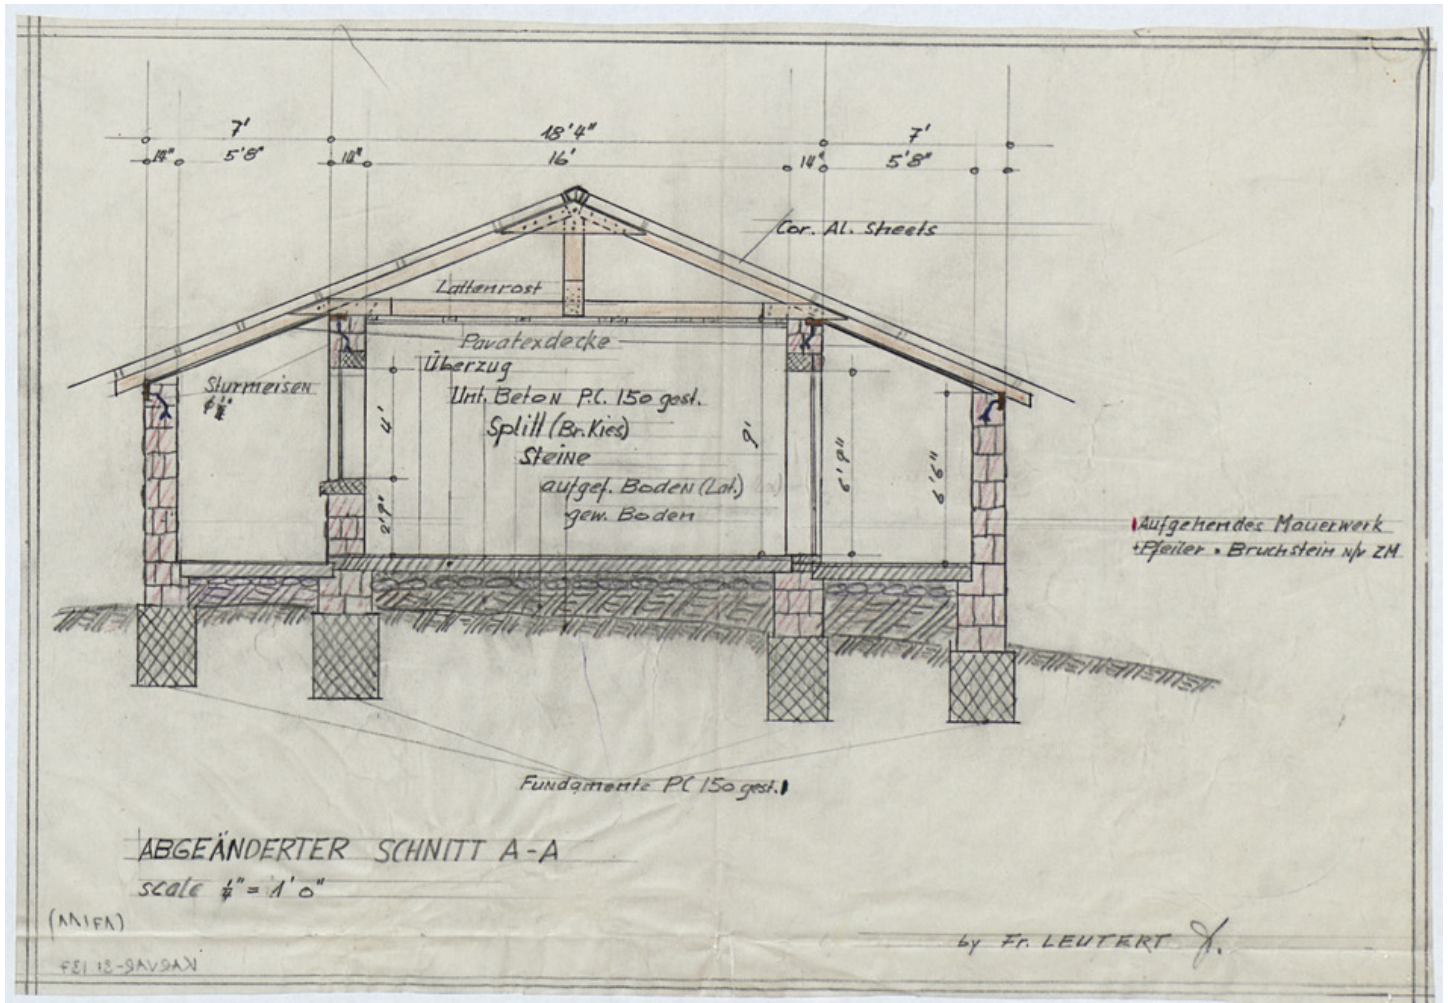 7' 18'4" 7'
14" 5'8" 14" 16' 14" 5'8"
Cor. Al. Sheets
Lattenrost
Pavatexdecke
Überzug
Sturmeisen
Unt. Beton P.C. 150 gest.
Splitt (Br. Kies)
Steine
aufgef. Boden (Lat.)
gew. Boden
4'
2'9"
9'
6'9"
6'6"
Aufgehendes Mauerwerk
+ Pfeiler = Bruchstein n/v ZM
Fundamente PC 150 gest.
ABGEÄNDERTER SCHNITT A-A
scale ¼" = 1'0"
by Fr. LEUTERT